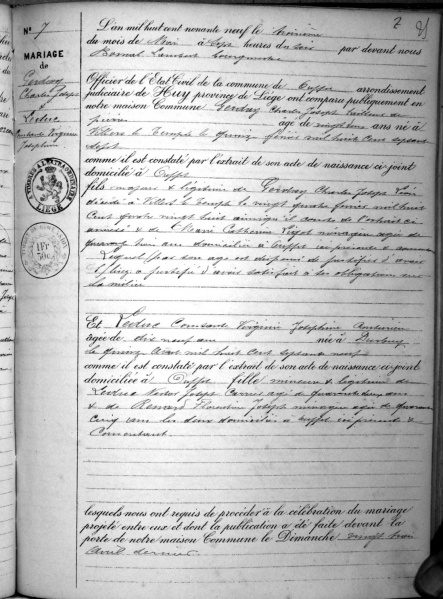 N° 7
MARIAGE
de
Charles Joseph
&
Leduc
Constance Virginie
Joséphine
L'An mil huit cent nonante neuf le troisième
du mois de Mai à sept heures du soir par devant nous
Officier de l'État Civil de la commune de arrondissement
judiciaire de Huy province de Liége ont comparu publiquement en
notre maison Commune Charles Joseph de
pierre âgé de ans né à
Villers le Temple le quinze février mil huit cent septante
sept
comme il est constaté par l'extrait de son acte de naissance ci-joint
domicilié à
fils majeur & légitime de Charles Joseph
décédé à Villers le Temple le vingt quatre février mil huit
cent quatre vingt ainsi qu'il conste de l'extrait ci
annexé & de Marie Catherine ménagère âgée de
ans domiciliée à ci présente &
Lequel par son âge est dispensé de justifier d'avoir
a justifié d'avoir satisfait à ses obligations sur
la milice
Et Leduc Constance Virginie Joséphine
âgée de dix neuf ans née à Durbuy
le quinze Avril mil huit cent septante neuf
comme il est constaté par l'extrait de son acte de naissance ci-joint
domiciliée à fille mineure & légitime de
Leduc Victor Joseph âgé de quarante ans
& de Renard Florentine Joseph ménagère âgée de quarante
cinq ans les deux domiciliés à ci présents &
Consentant
lesquels nous ont requis de procéder à la célébration du mariage
projeté entre eux et dont la publication a été faite devant la
porte de notre maison Commune le Dimanche vingt trois
avril dernier